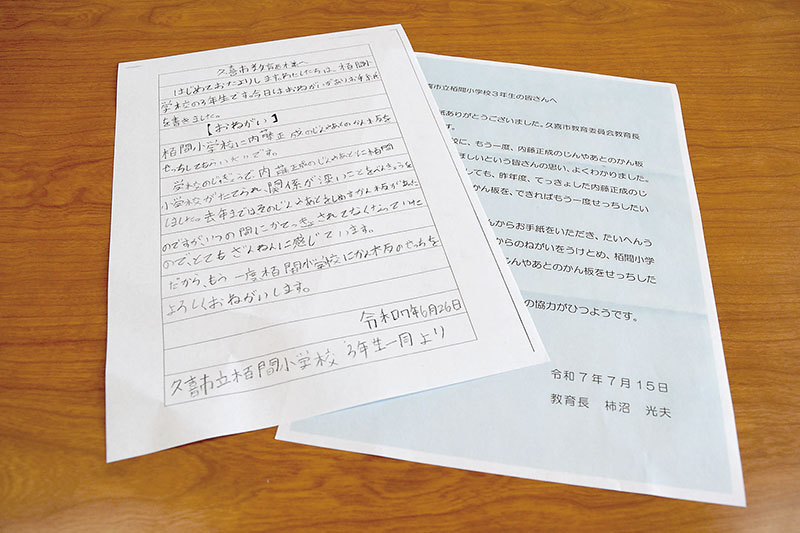 久喜市教育長様へ
はじめておたよりします。わたしたちは、栢間小
学校の3年生です。今日はおねがいがありお手紙
を書きました。
【おねがい】
栢間小学校に内藤正成のじんやあとのかん板を
せっちしてもらいたいです。
学校のじゅぎょうで、内藤正成のじんやあとに栢間
小学校がたてられ、関係が深いことをべんきょう
しました。去年まではそのじんやあとをしめすかん板があった
のですが、いつの間にかてっきょされてなくなっていた
ので、とてもざんねんに感じています。
だから、もう一度栢間小学校にかん板のせっちを
よろしくおねがいします。
令和7年6月26日
久喜市立栢間小学校 3年生一同より
喜市立栢間小学校3年生の皆さんへ
紙ありがとうございました。久喜市教育委員会教育長
す。
校に、もう一度、内藤正成のじんやあとのかん板
ほしいという皆さんの思い、よくわかりました。
しても、昨年度、てっきょした内藤正成のじ
かん板を、できればもう一度せっちしたい
んからお手紙をいただき、たいへんう
からのねがいをうけとめ、栢間小学
じんやあとのかん板をせっちした
の協力がひつようです。
令和7年7月15日
教育長 柿沼 光夫